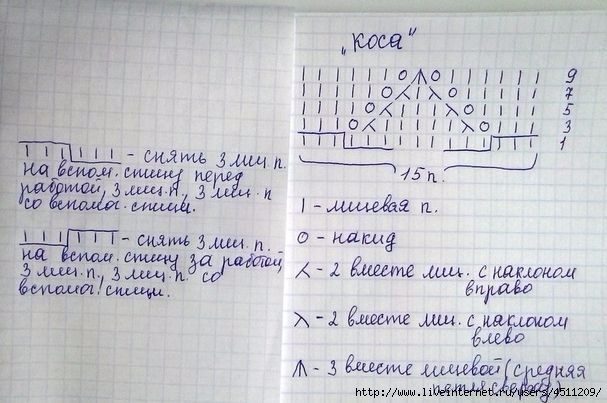 „Коса“
| | | | | | О ⋀ О | | | | | | 9
| | | | | О ⋌ | ⋋ О | | | | | 7
| | | | О ⋌ | | | ⋋ О | | | | 5
| | | О ⋌ | | | | | ⋋ О | | | 3
| | | | | | | | | | | | | | | 1
15 п.
| | | | | | - снять 3 лиц. п.
на вспом. спицу перед
работой, 3 лиц. п., 3 лиц. п
со вспомог. спицы.
| | | | | | - снять 3 лиц. п.
на вспом. спицу за работой,
3 лиц. п., 3 лиц. п. со
вспомог. спицы.
| - лицевая п.
О - накид
⋌ - 2 вместе лиц. с наклоном
вправо
⋋ - 2 вместе лиц. с наклоном
влево
⋀ - 3 вместе лицевой (средняя
петля сверху)
http://www.liveinternet.ru/users/4511209/